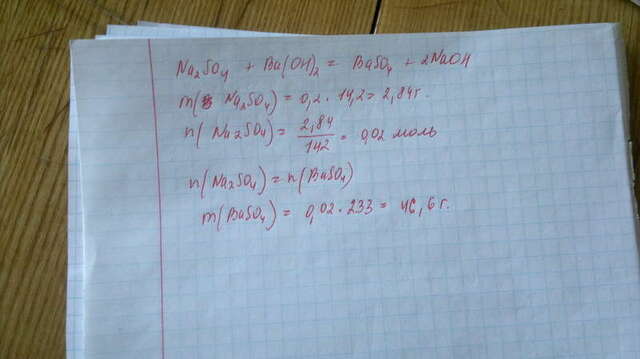 Na₂SO₄ + Ba(OH)₂ = BaSO₄ + 2NaOH
m( Na₂SO₄) = 0,2 · 14,2 = 2,84 г.
n( Na₂SO₄) = 2,84/142 = 0,02 моль
n(Na₂SO₄) = n(BaSO₄)
m(BaSO₄) = 0,02 · 233 = 46,6 г.